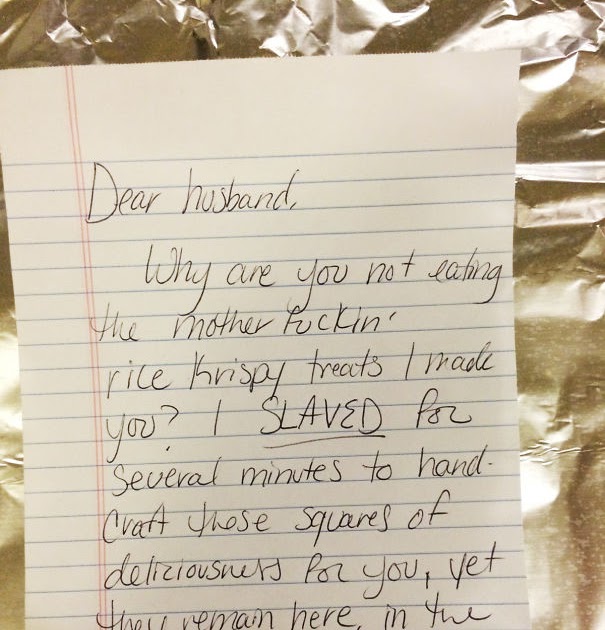 Dear husband,
Why are you not eating
the mother fuckin'
rice krispy treats I made
you? I SLAVED for
several minutes to hand-
craft those squares of
deliciousness for you, yet
they remain here, in the